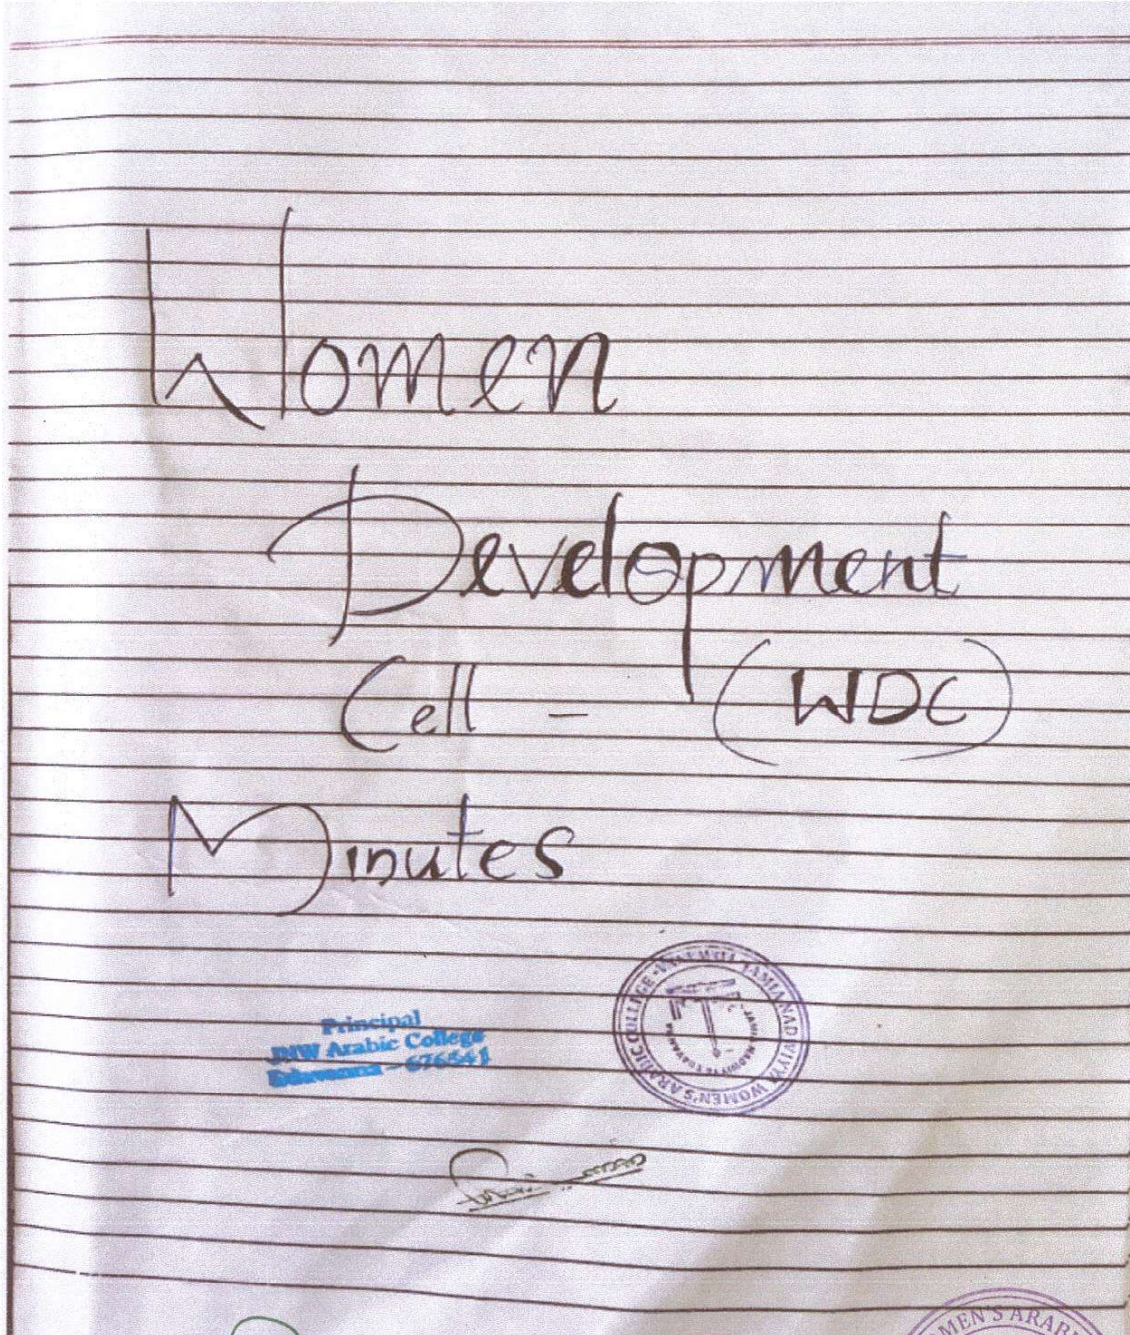 Women
Development
Cell - (WDC)
Minutes
Principal
JNW Arabic College
Edavanna - 676541
JAMIA NADWIYYA WOMEN'S ARABIC COLLEGE
MEN'S ARAB